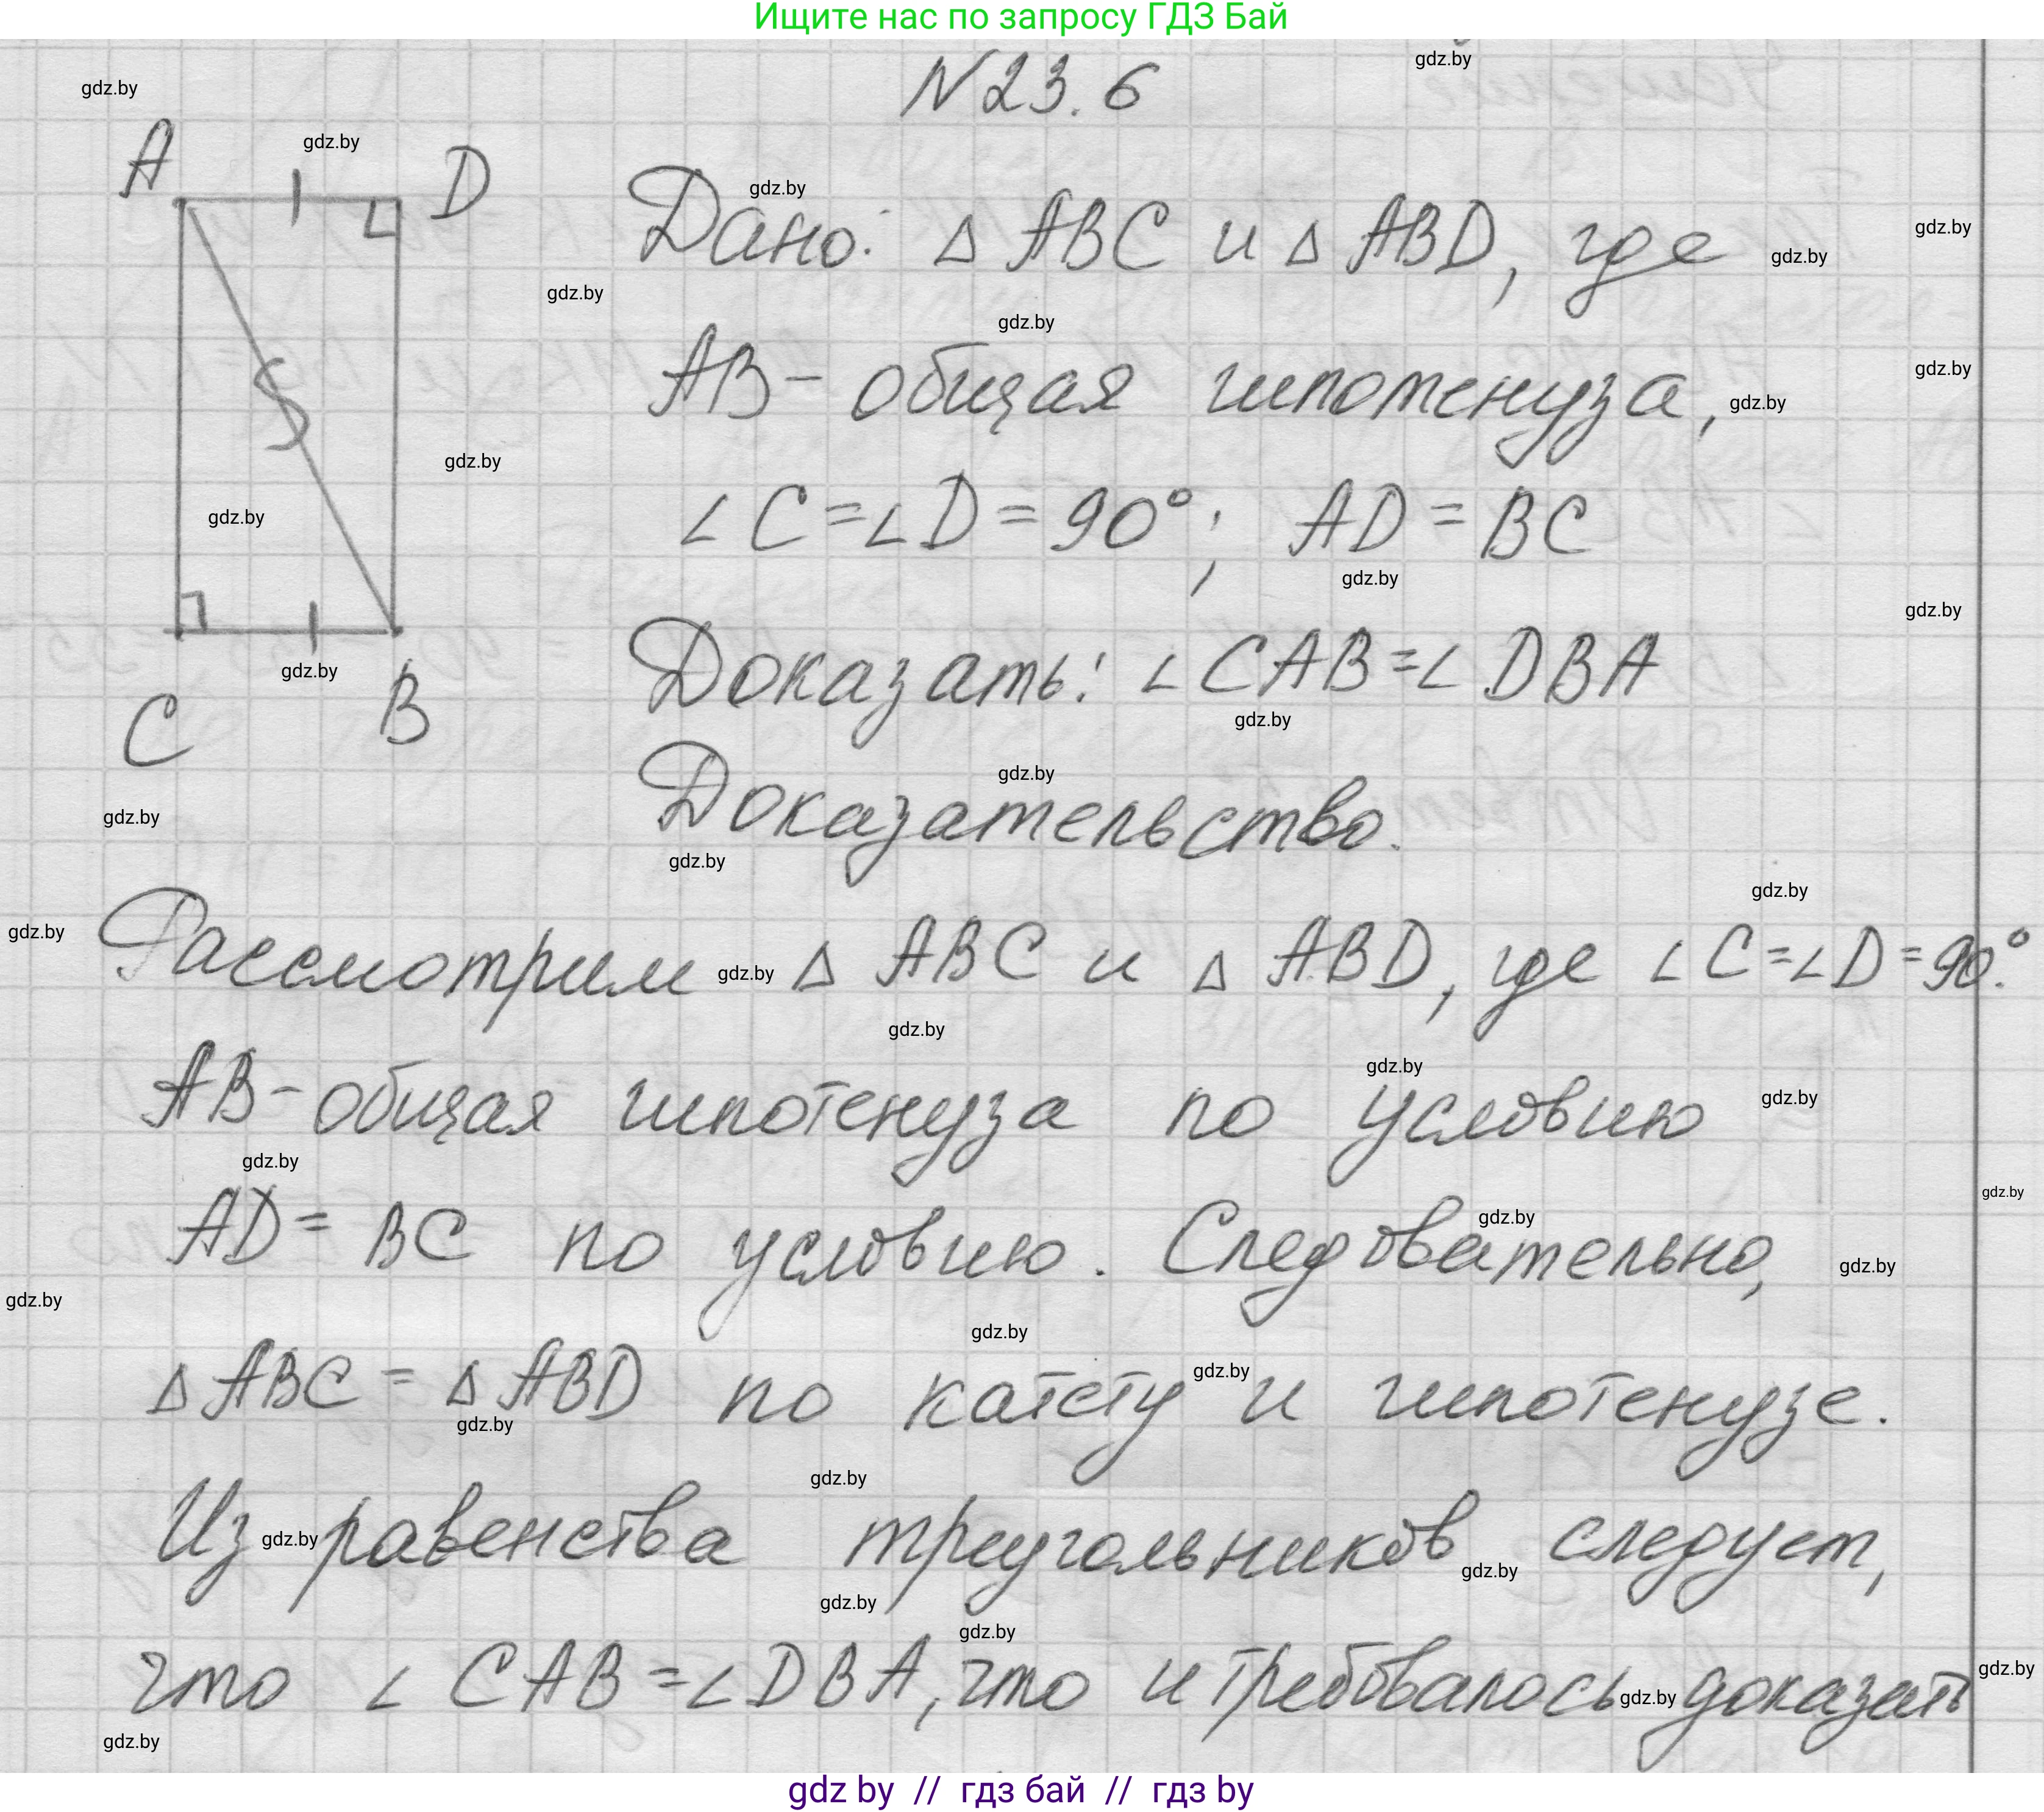 Ищите нас по запросу ГДЗ Бай
N 23.6
A
D
C
B
Дано: Δ ABC и Δ ABD, где
AB - общая гипотенуза,
∠C=∠D=90°; AD=BC
Доказать: ∠CAB=∠DBA
Доказательство.
Рассмотрим Δ ABC и Δ ABD, где ∠C=∠D=90°.
AB - общая гипотенуза по условию
AD= BC по условию. Следовательно,
Δ ABC = Δ ABD по катету и гипотенузе.
Из равенства треугольников следует,
что ∠CAB=∠DBA, что и требовалось доказать
gdz by // гдз бай // гдз by
gdz.by